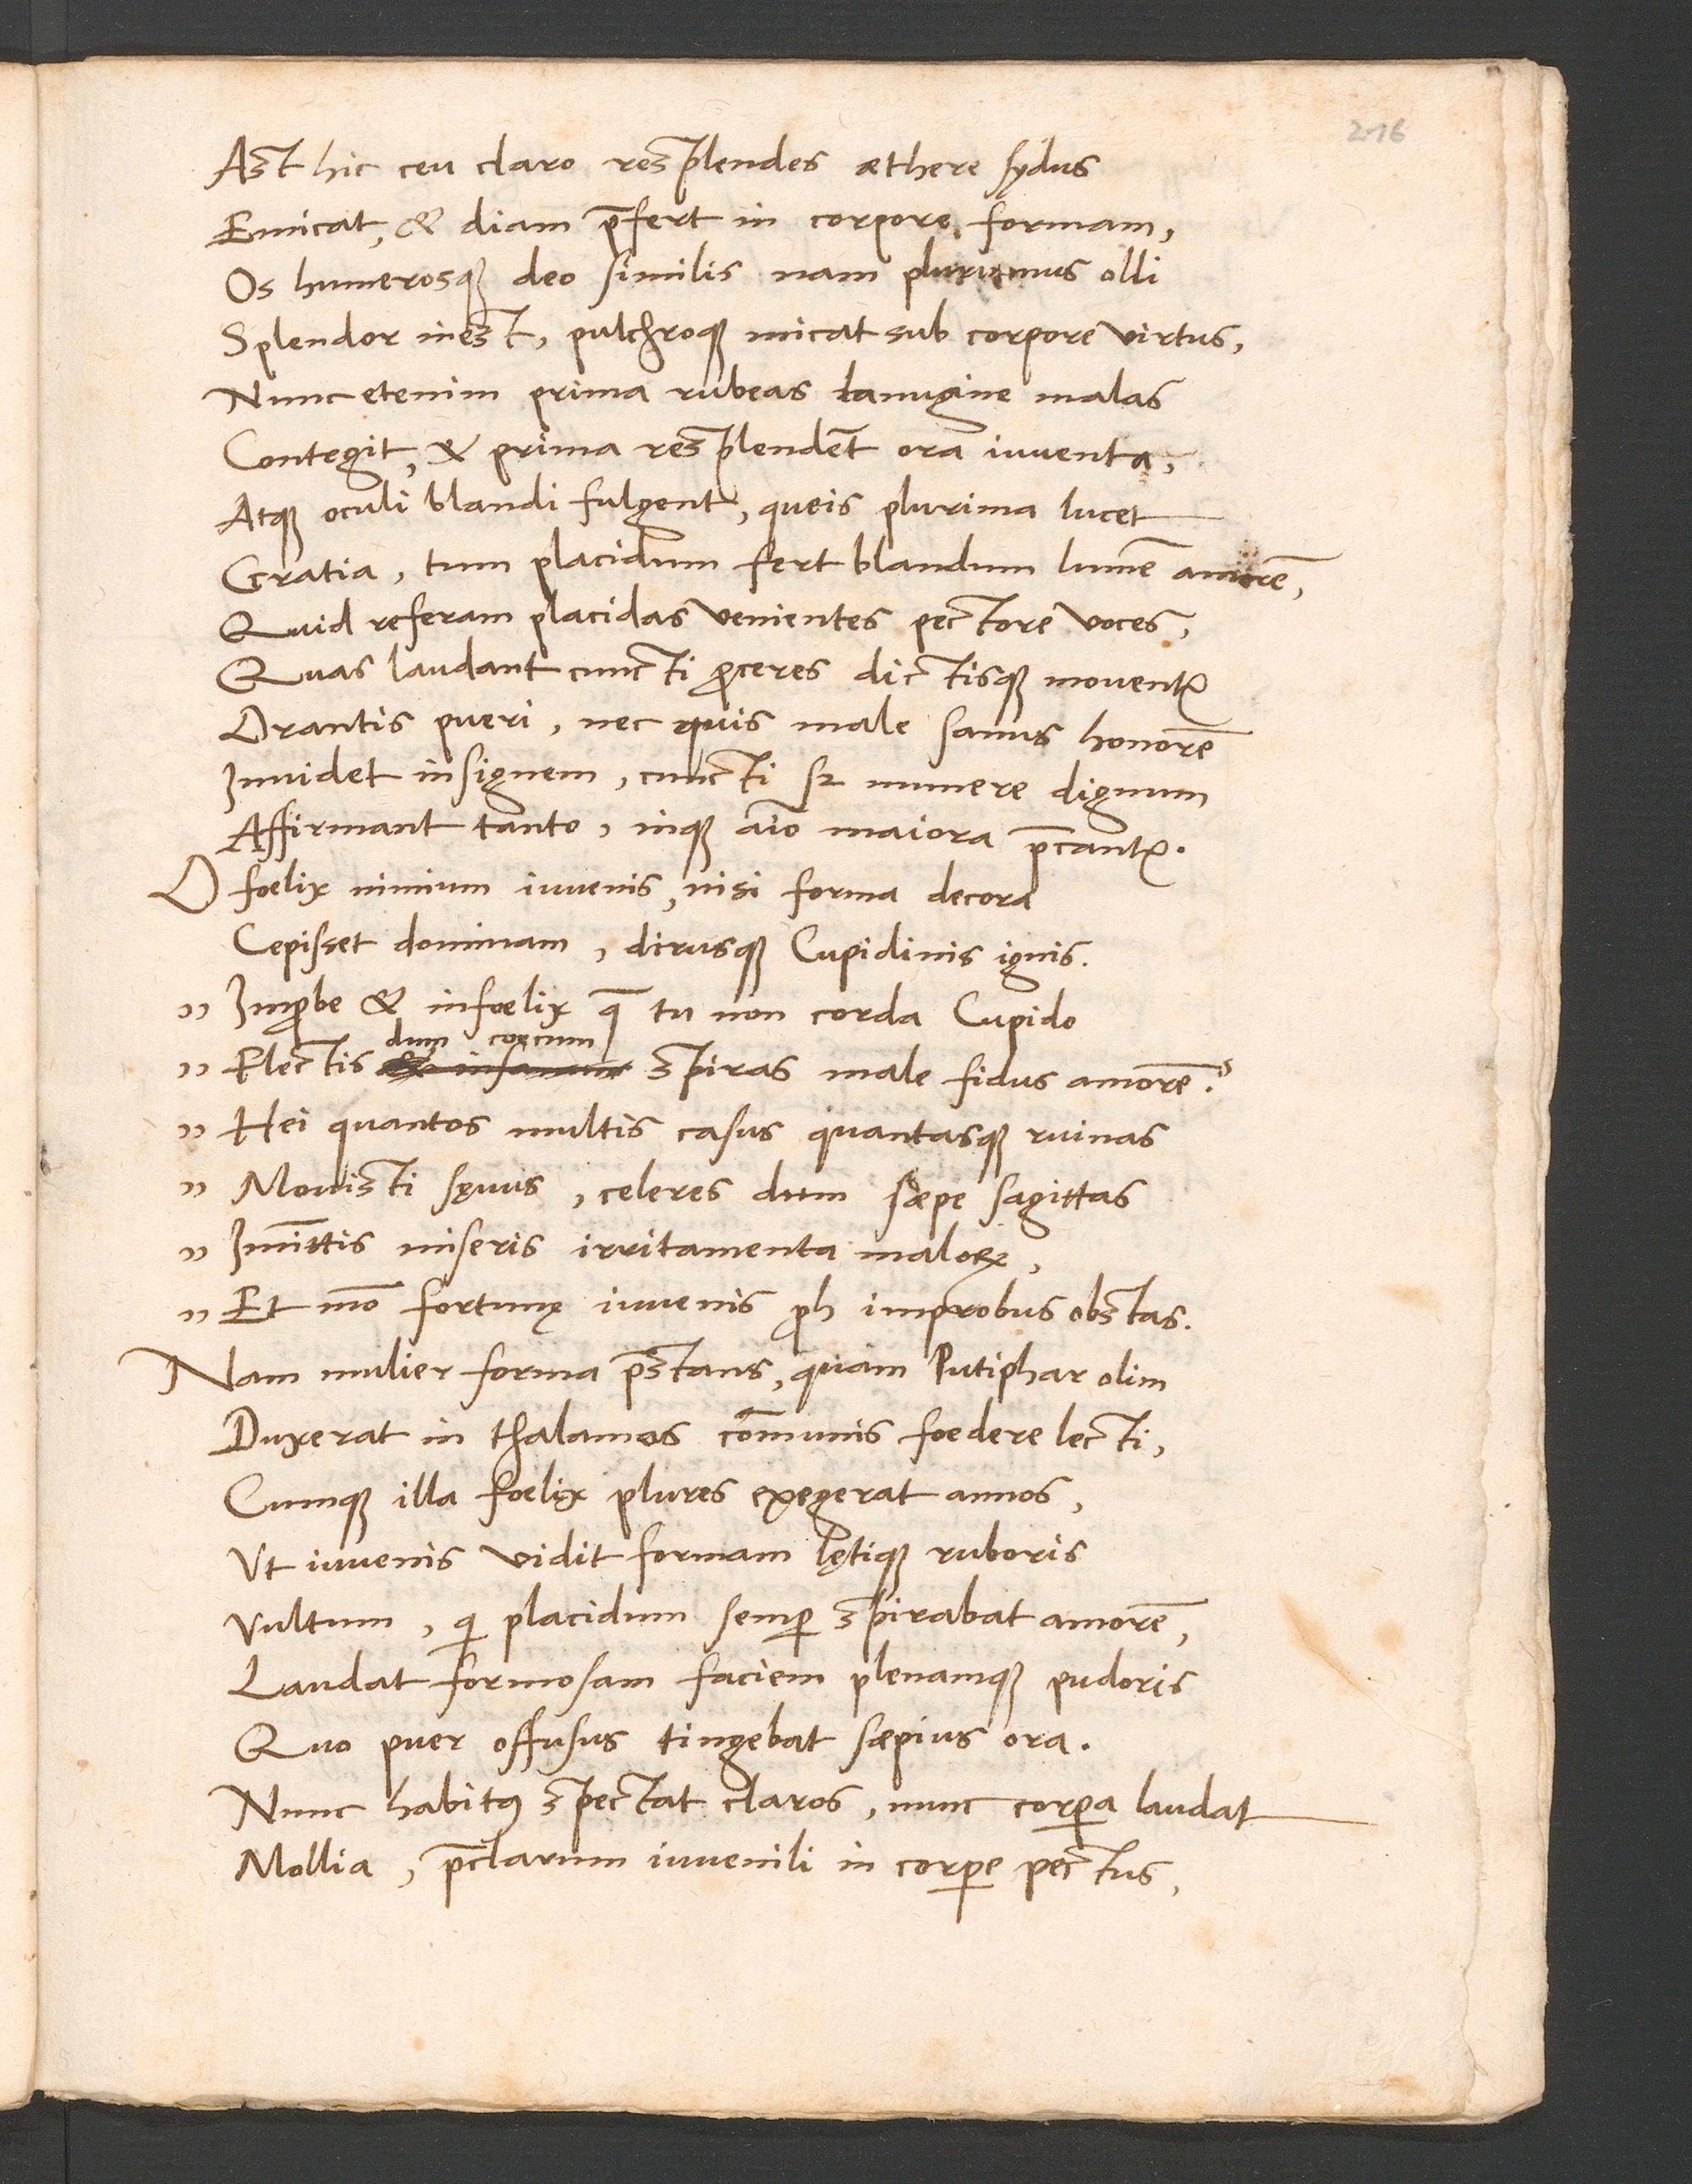 216
Ast hic ceu claro resplendes æthere sydus
Emicat, & diam p̄fert in corpore formam,
Os humerosqꝫ deo similis nam plurimus olli
Splendor inest, pulchroqꝫ micat sub corpore virtus,
Nunc etenim prima rubeas lanugine malas
Contegit, & prima resplendēt ora iuventa,
Atqꝫ oculi blandi fulgent, queis plurima lucet
Gratia, tum placidum fert blandum lumē amorē,
Quid referam placidas venientes pectore voces,
Quas laudant cuncti ꝓceres dictisqꝫ moventꝰ
Orantis pueri, nec quis male sanus honorē
Invidet insignem, cuncti sꝫ munere dignum
Affirmant tanto, inqꝫ aīo maiora p̄cantꝰ.
O foelix nimium iuvenis, nisi forma decora
Cepisset dominam, dirusqꝫ Cupidinis ignis.
" Imꝓbe & infoelix q̄ tu non corda Cupido
dum coecum
" Flectis & insanum spiras male fidus amorē?
" Hei quantos multis casus quantasqꝫ ruinas
" Movisti sęvus, celeres dum sæpe sagittas
" Im̄ittis miseris irritamenta maloꝝ,
" Et mō fortunę iuvenis ꝓh improbus obstas.
Nam mulier forma p̄stans, quam Putiphar olim
Duxerat in thalamos com̄unis foedere lecti,
Cumqꝫ illa foelix plures exegerat annos,
Ut iuvenis vidit formam lętiqꝫ ruboris
Vultum, qi placidum semꝑ spirabat amorē,
Laudat formosam faciem plenamqꝫ pudoris
Quo puer offusus tingebat sæpius ora.
Nunc habitꝰ spectat claros, nunc corꝑa laudat
Mollia, p̄clarum iuvenili in corꝑe pectus,